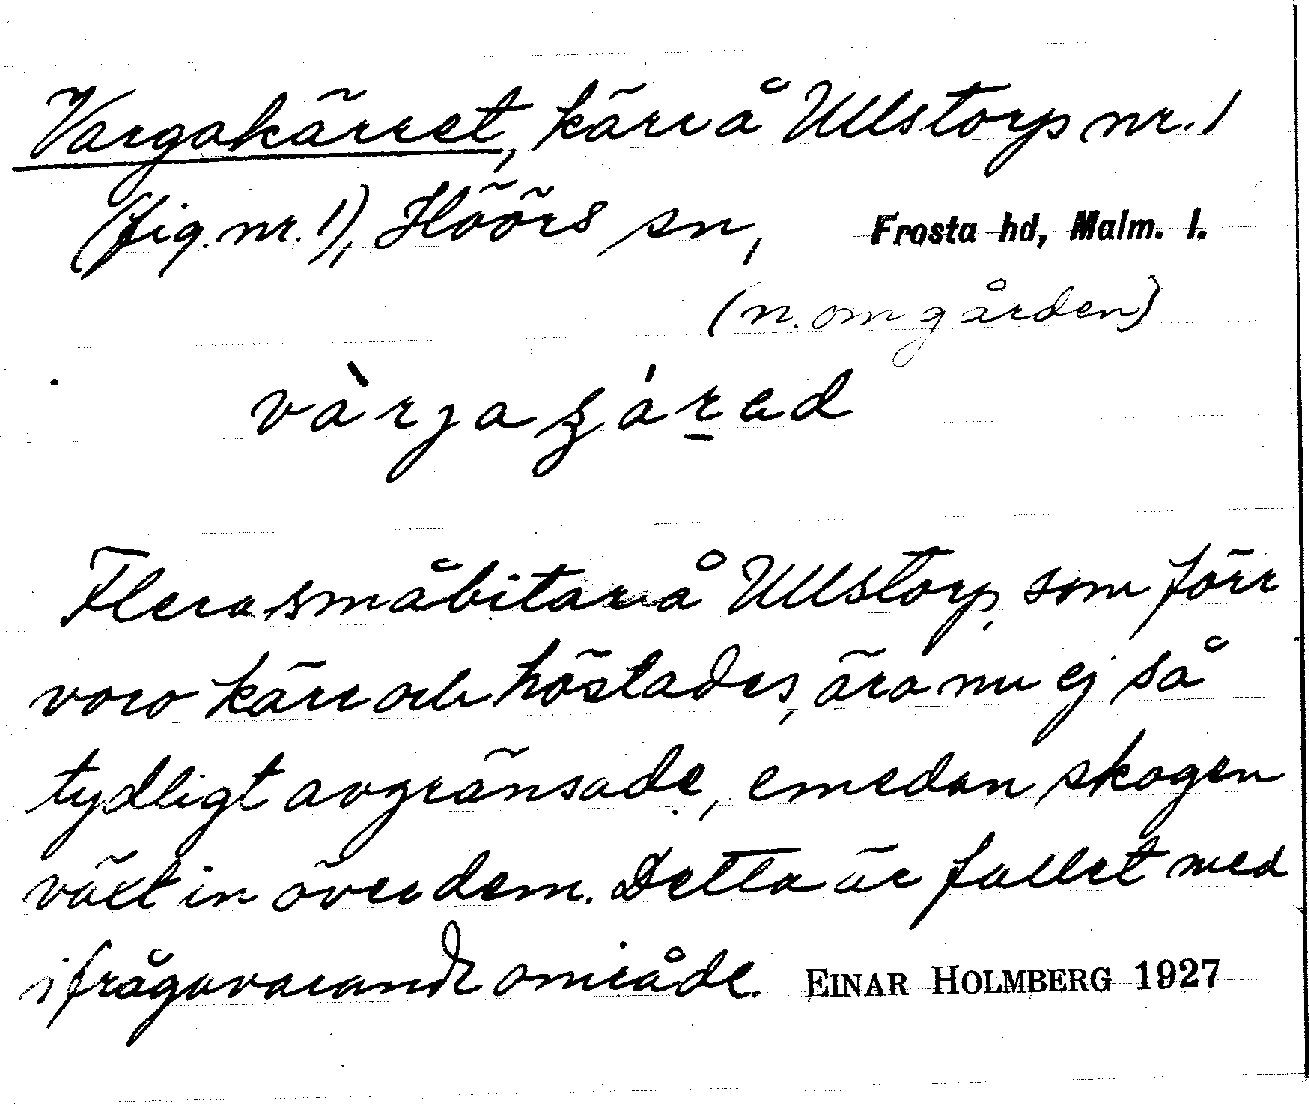 Vargakärret, kärr å Ullstorp nr. 1
(fig. nr. 1), Höörs sn, Frosta hd, Malm. l.
(n. om gården)
Flera småbitar å Ullstorp, som förr
voro kärr och höstades, äro nu ej så
tydligt avgränsade, emedan skogen
växt in över dem. Detta är fallet med
ifrågavarande område. EINAR HOLMBERG 1927